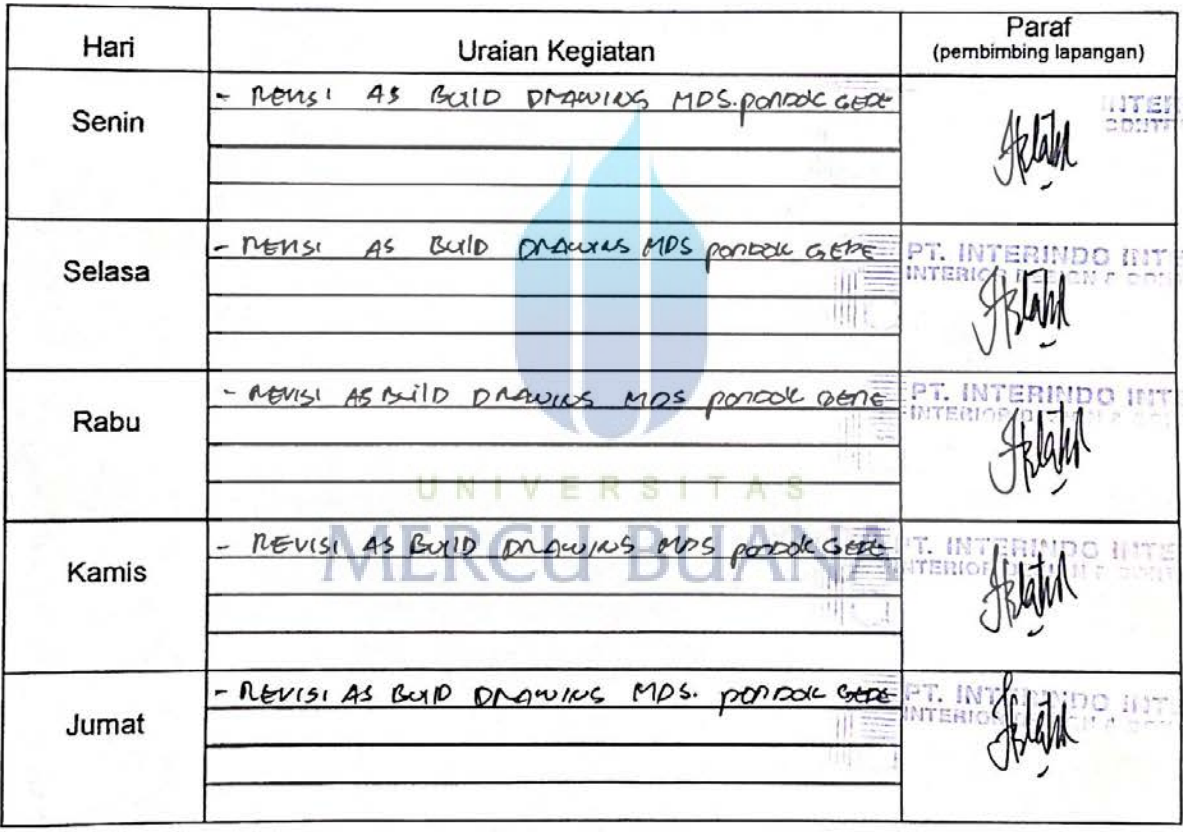 Hari Uraian Kegiatan Paraf
(pembimbing lapangan)
Senin
- REVISI AS BUILD DRAWING MDS. PONDOK GEDE
Selasa
- REVISI AS BUILD DRAWING MDS PONDOK GEDE
PT. INTERINDO INTE
Rabu
- REVISI AS BUILD DRAWING MDS PONDOK GEDE
PT. INTERINDO INT
UNIVERSITAS
MERCU BUANA
Kamis
- REVISI AS BUILD DRAWING MDS PONDOK GEDE
PT. INTERINDO INTE
Jumat
- REVISI AS BUILD DRAWING MDS. PONDOK GEDE